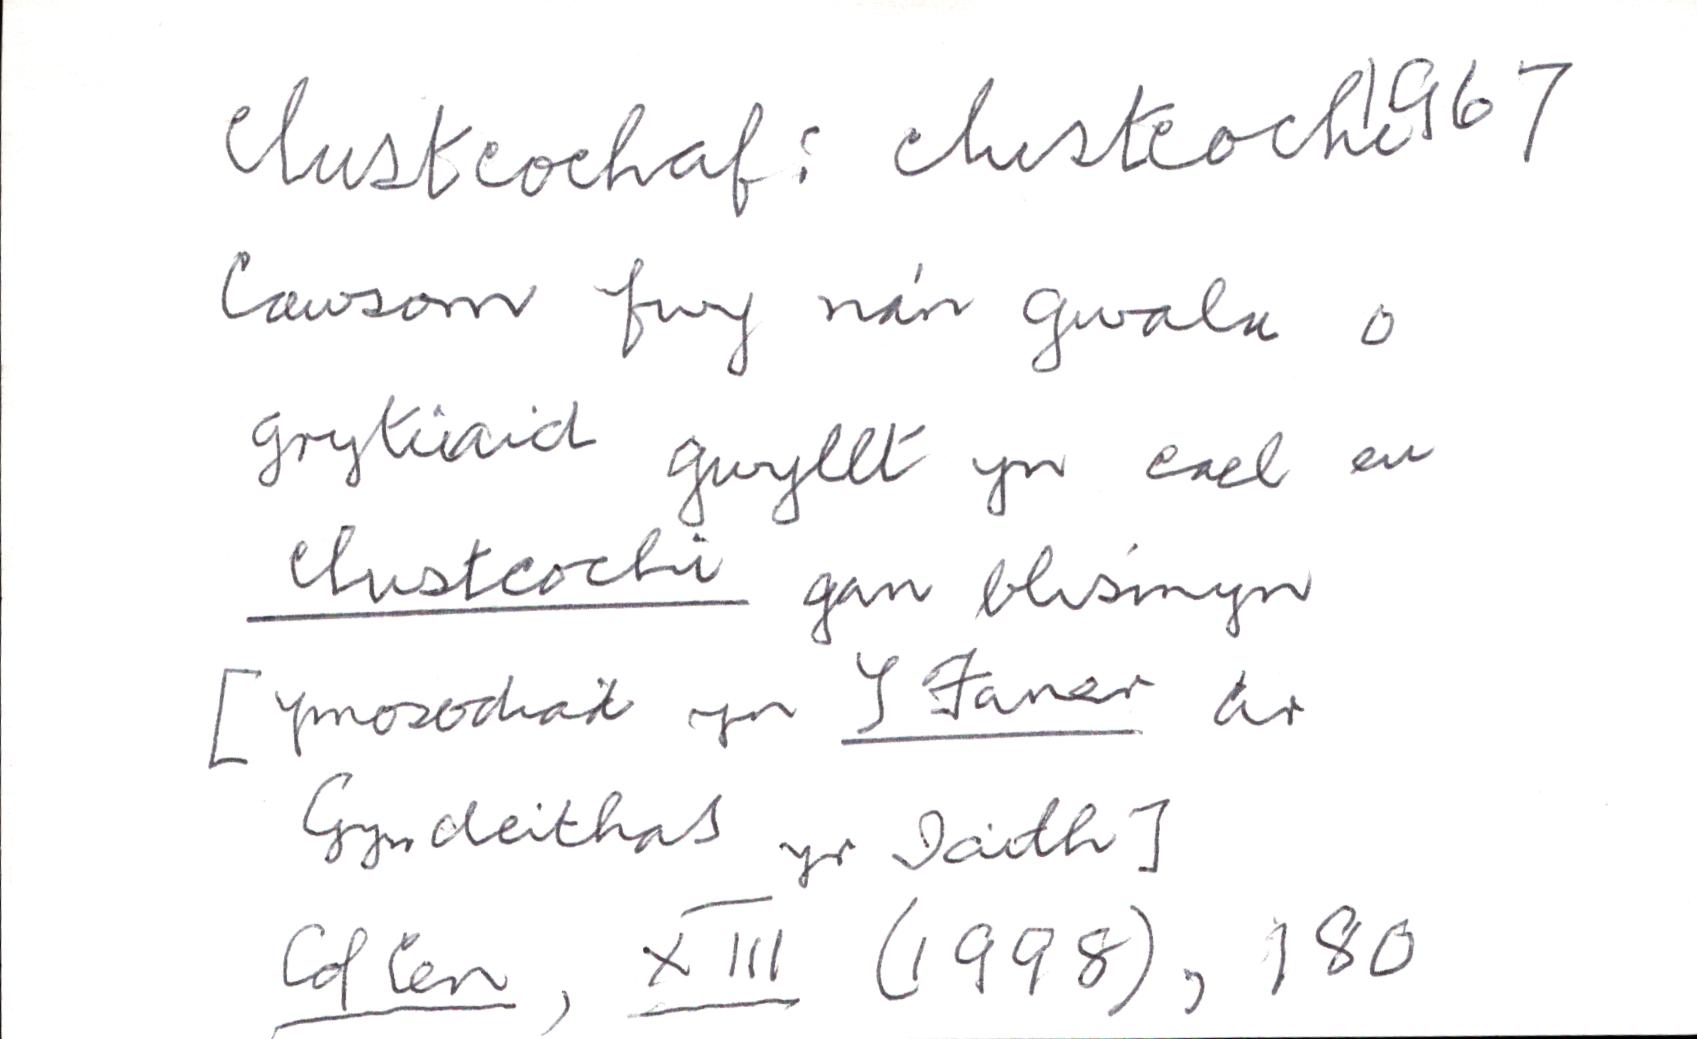 clustcochaf: clustcochi 1967
Cawsom fwy na'n gwala o
grytiaid gwyllt yn cael eu
clustcochi gan blismyn
[ymosodiad yn Y Faner ar
Gymdeithas yr Iaith]
Cof Cen, XIII (1998), 180